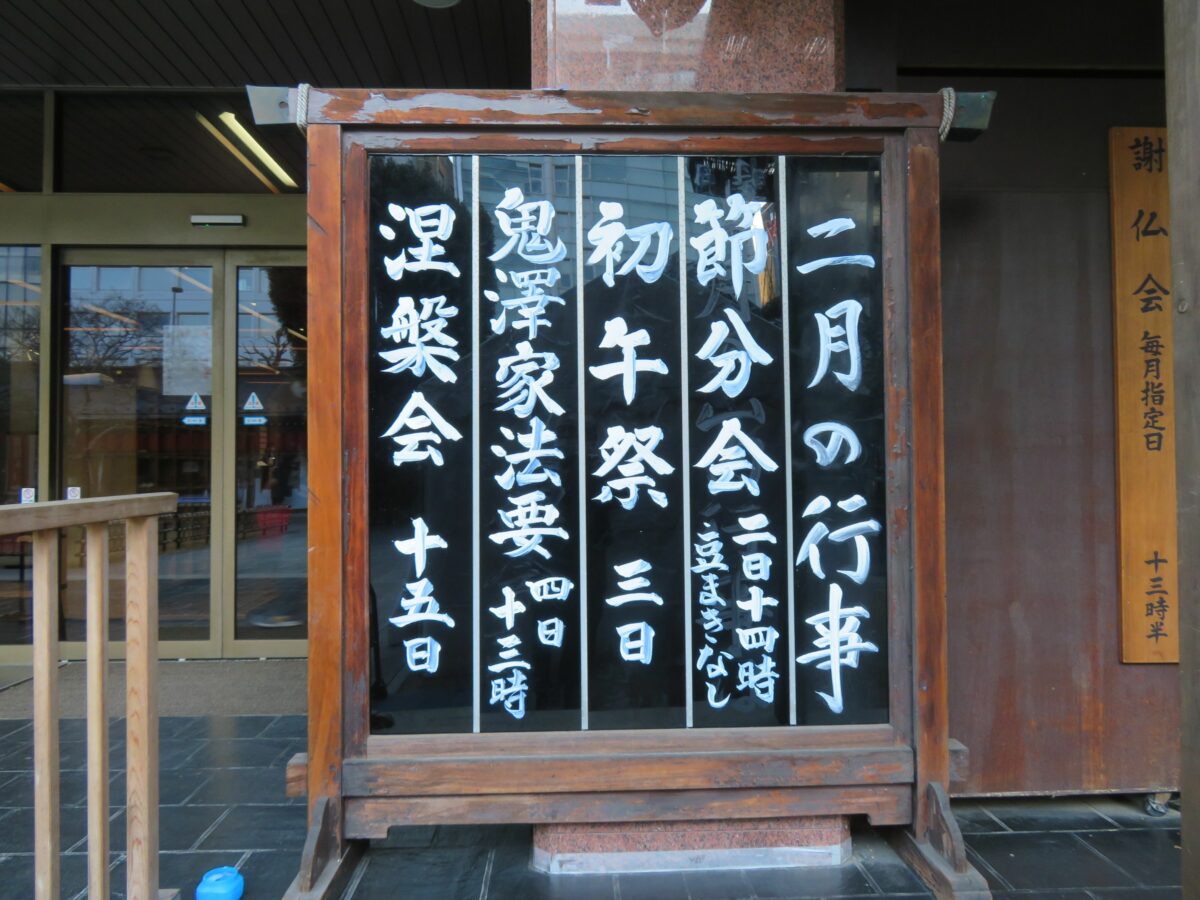 二月の行事
節分会 二日十四時
豆まきなし
初午祭 三日
鬼澤家法要 四日
十三時
涅槃会 十五日
謝仏会 毎月指定日 十三時半